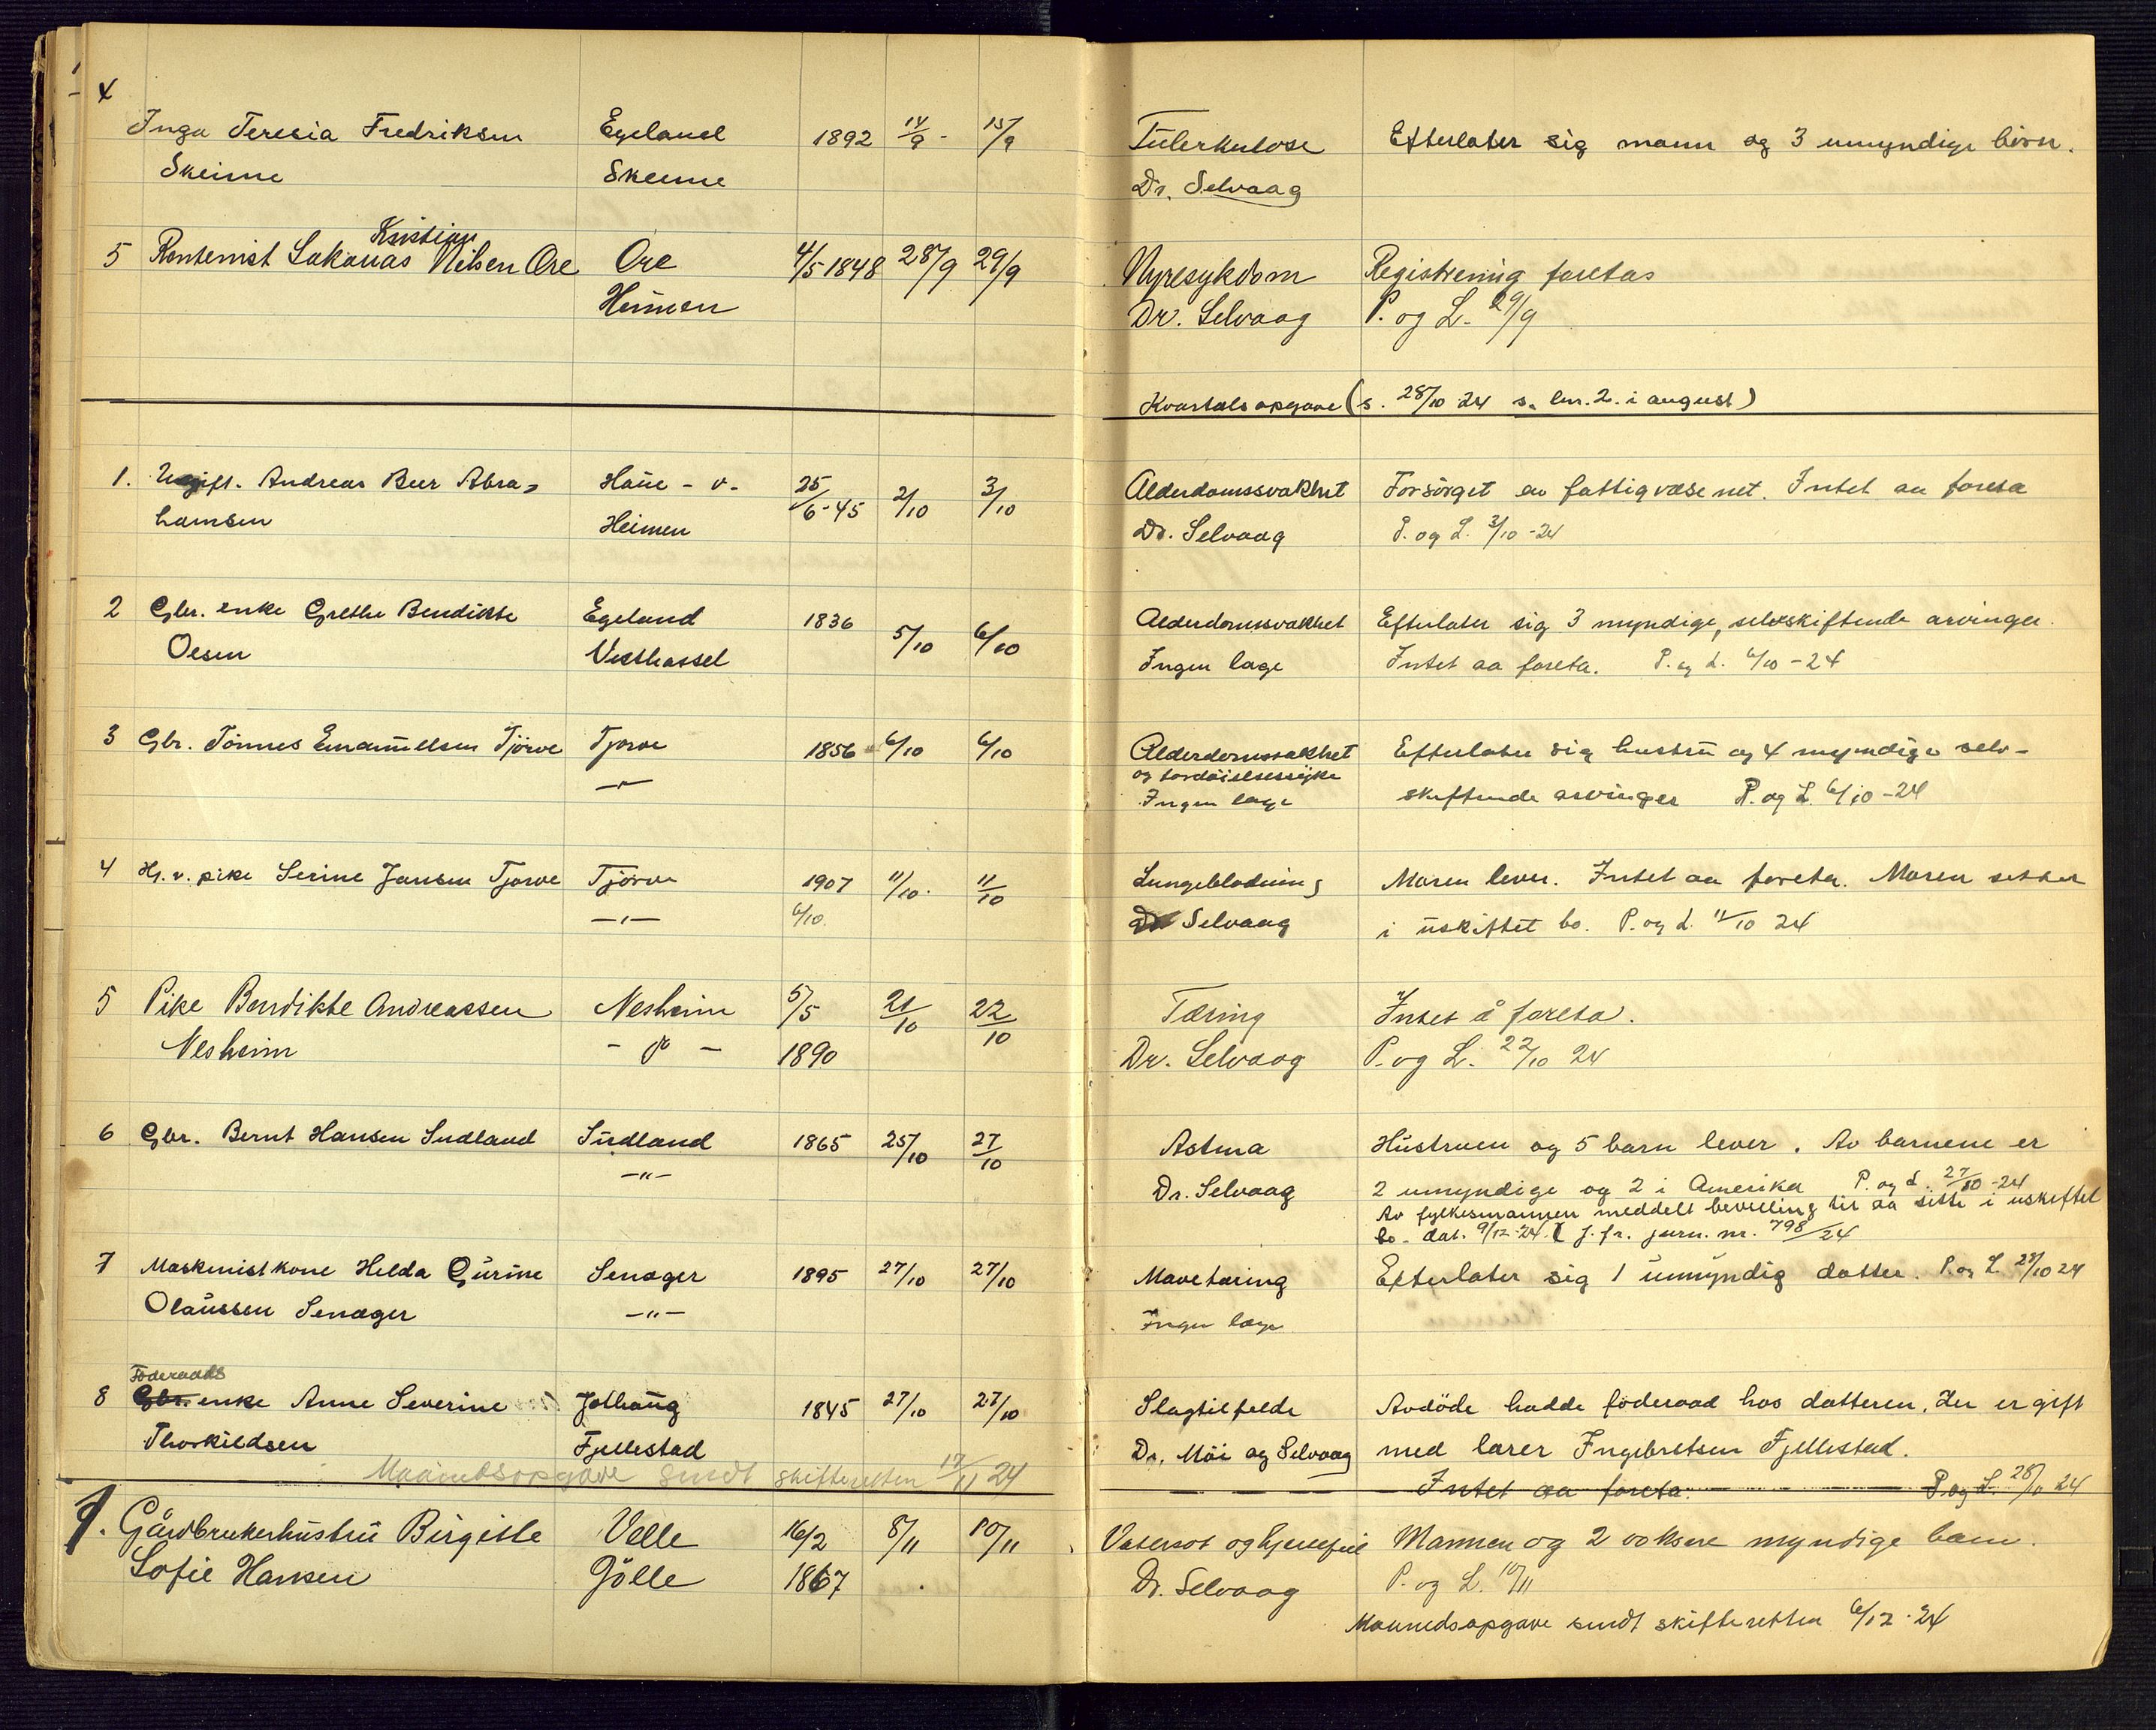 4 Inga Teresia Fredriksen Egeland 1892 14/9 - 15/9 Tuberkulose Efterlater sig mann og 3 umyndige børn.
Skeime Skeime Dr. Selvaag
Kristian
5 Rentenist Sakarias Nilsen Ore Ore 4/5 1848 28/9 29/9 Nyresykdom Registrering foretas
Heimen Dr. Selvaag P. og L. 29/9
Kvartalsopgave (s. 28/10 24 s. lnr. 2. i august)
1. Ugift. Andreas Beer Abra- Haue - v. 25/6-45 2/10 3/10 Alderdomssvakhet Forsörget av fattigvæsenet. Intet aa foreta
hamsen Heimen Dr. Selvaag P. og L. 3/10-24
2 Gbr. enke Grethe Bendikte Egeland 1836 5/10 6/10 Alderdomssvakhet Efterlater sig 3 myndige, selvskiftende arvinger.
Olsen Vesthassel Ingen læge Intet aa foreta. P. og L. 6/10-24
3 Gbr. Tönnes Emanuelsen Tjörve Tjörve 1856 6/10 6/10 Alderdomssvakhet Efterlater sig hustru og 4 myndige selv-
og fordöielsessyke
-"- Ingen læge skiftende arvinger P. og L. 6/10-24
4 Hj. v. pike Serine Jansen Tjørve Tjörve 1907 11/10. 11/10 Lungeblødning Moren lever. Intet aa foreta. Moren sitter
-"- 6/10 Dr. Selvaag i uskiftet bo. P. og L. 11/10 24
5 Pike Bendikte Andreassen Nesheim 5/5 21/10 22/10 Tæring Intet å foreta.
Nesheim - " - 1890 Dr. Selvaag P. og L. 22/10 24
6 Gbr. Bernt Hansen Sudland Sudland 1865 25/10 27/10 Astma Hustruen og 5 barn lever. Av barnene er
-"- Dr. Selvaag 2 umyndige og 2 i Amerika P. og L. 27/10-24
Av fylkesmannen meddelt bevilling til aa sitte i uskiftet
bo - dat. 9/12-24. J. fr. jurn. nr. 798/24
7 Maskinistkone Helda Gurine Senager 1895 27/10 27/10 Mavetæring Efterlater sig 1 umyndig datter. P. og L. 28/10 24
Olaussen Senager -"- Ingen læge
Föderaads
8 Gbr. enke Anne Severine Jølhaug 1845 27/10 27/10 Slagtilfelde Avdöde hadde föderaad hos datteren, der er gift
Thorkildsen Fjellestad Dr. Möi og Selvaag med lærer Ingebretsen Fjellestad.
Maanedsopgave sendt skifteretten 12/11 24 Intet aa foreta. P. og L. 28/10 24
1. Gårdbrukerhustru Birgitte Velle 16/2 8/11 10/11 Vatersot og hjertefeil Mannen og 2 voksne myndige barn.
Sofie Hansen Gölle 1867 Dr. Selvaag P. og L. 10/11
Maanedsopgave sendt skifteretten 6/12-24